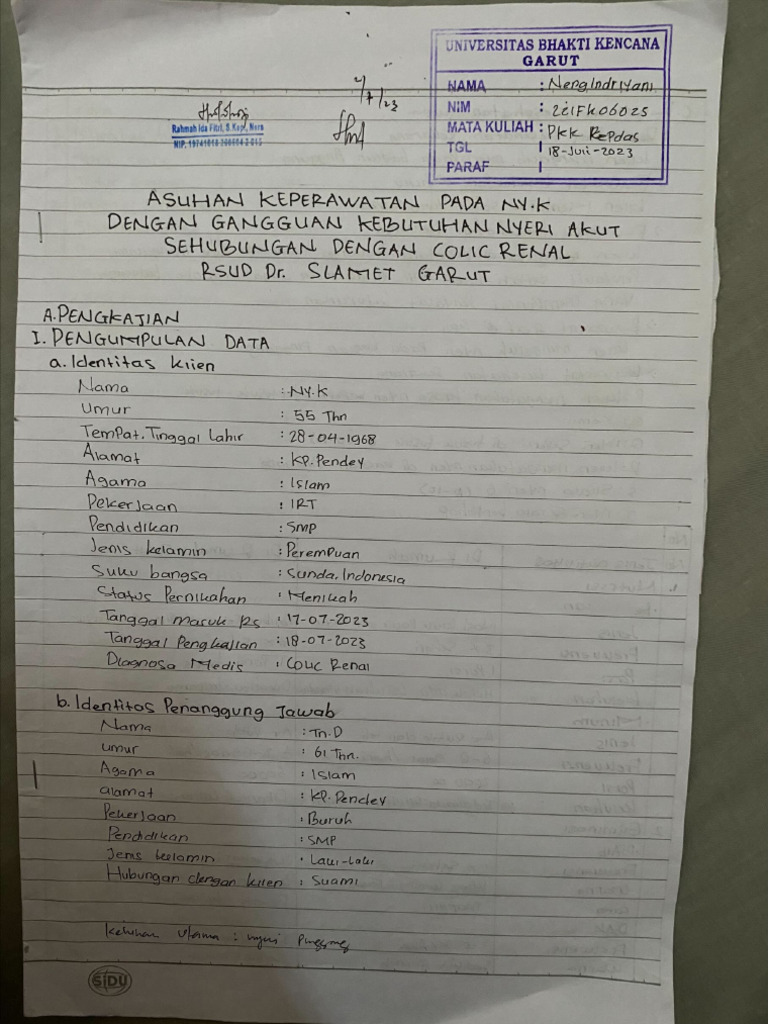 UNIVERSITAS BHAKTI KENCANA
GARUT
NAMA : Neng Indriyani
NIM : 221FK06025
MATA KULIAH : PKK KePdas
TGL 18-Juli-2023
PARAF
2/7/23
Rahmah Ida Fitri, S.Kep., Ners
NIP.
ASUHAN KEPERAWATAN PADA NY.K
DENGAN GANGGUAN KEBUTUHAN NYERI AKUT
SEHUBUNGAN DENGAN COLIC RENAL
RSUD Dr. SLAMET GARUT
A. PENGKAJIAN
I. PENGUMPULAN DATA
a. Identitas klien
Nama : NY.K
Umur : 55 Thn
Tempat.Tinggal Lahir : 28-04-1968
Alamat : KP.Pendey
Agama : Islam
Pekerjaan : IRT
Pendidikan : SMP
Jenis kelamin : Perempuan
Suku bangsa : Sunda.Indonesia
Status Pernikahan : Menikah
Tanggal masuk Rs : 17-07-2023
Tanggal Pengkajian : 18-07-2023
Diagnosa Medis : Colic Renal
b. Identitas Penanggung Jawab
Nama : Tn.D
umur : 61 Thn.
Agama : Islam
alamat : KP.Pendey
Pekerjaan : Buruh
Pendidikan : SMP
Jenis kelamin : Laki-laki
Hubungan dengan klien : Suami
keluhan utama : nyeri Punggung
SiDU